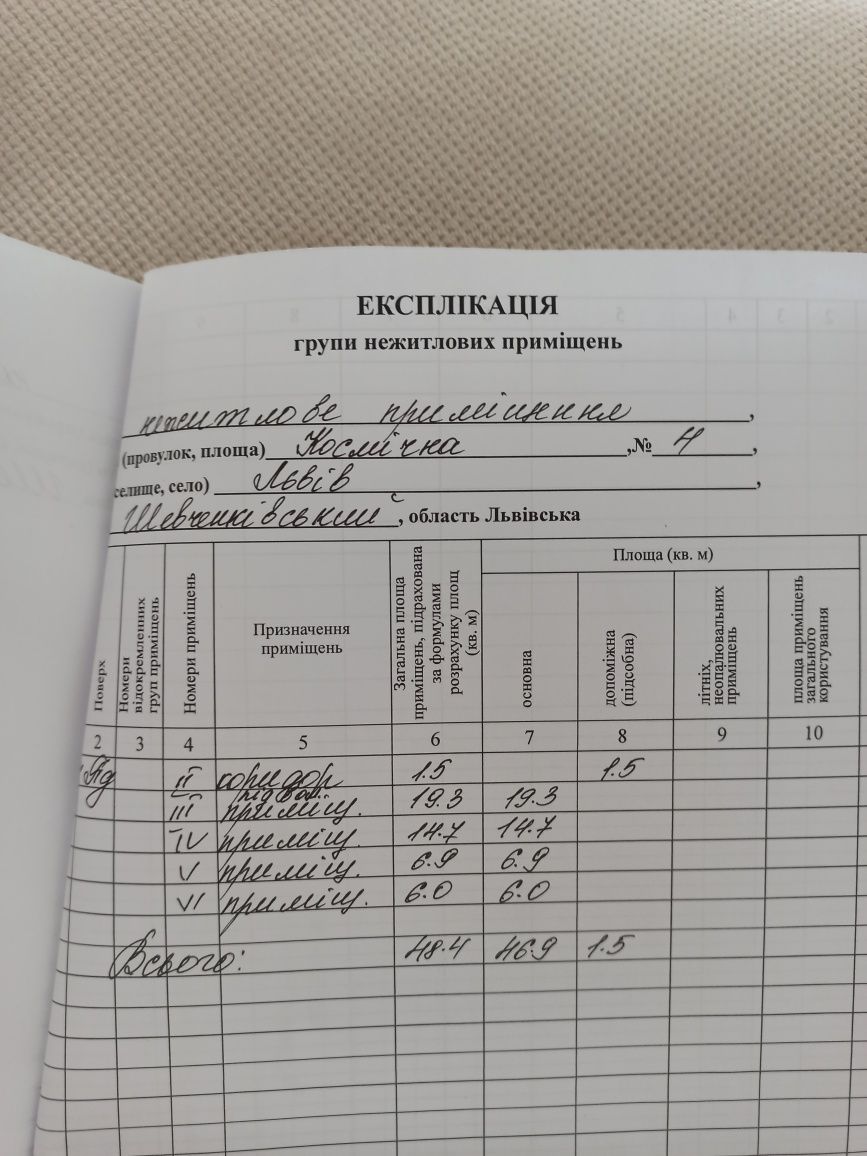 ЕКСПЛІКАЦІЯ
групи нежитлових приміщень
нежитлове приміщення,
(провулок, площа) Космічна, № 4,
селище, село) Львів,
Шевченківський, область Львівська
Поверх
Номери відокремленних груп приміщень
Номери приміщень
Призначення приміщень
Загальна площа приміщень, підрахована за формулами розрахунку площ (кв. м)
Площа (кв. м)
основна
допоміжна (підсобна)
літніх, неопалювальних приміщень
площа приміщень загального користування
2 3 4 5 6 7 8 9 10
Пд II коридор 1.5 1.5
підвал.
III приміщ. 19.3 19.3
IV приміщ. 14.7 14.7
V приміщ. 6.9 6.9
VI приміщ. 6.0 6.0
Всього: 48.4 46.9 1.5